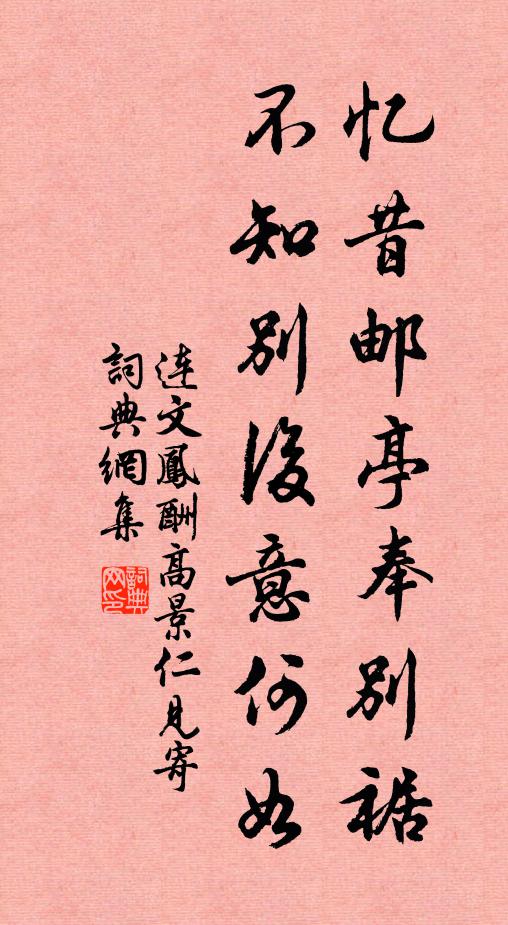 忆昔邮亭奉别裾
不知别後意何如
连文鳳酬高景仁见寄
詞典網集
詞典网印